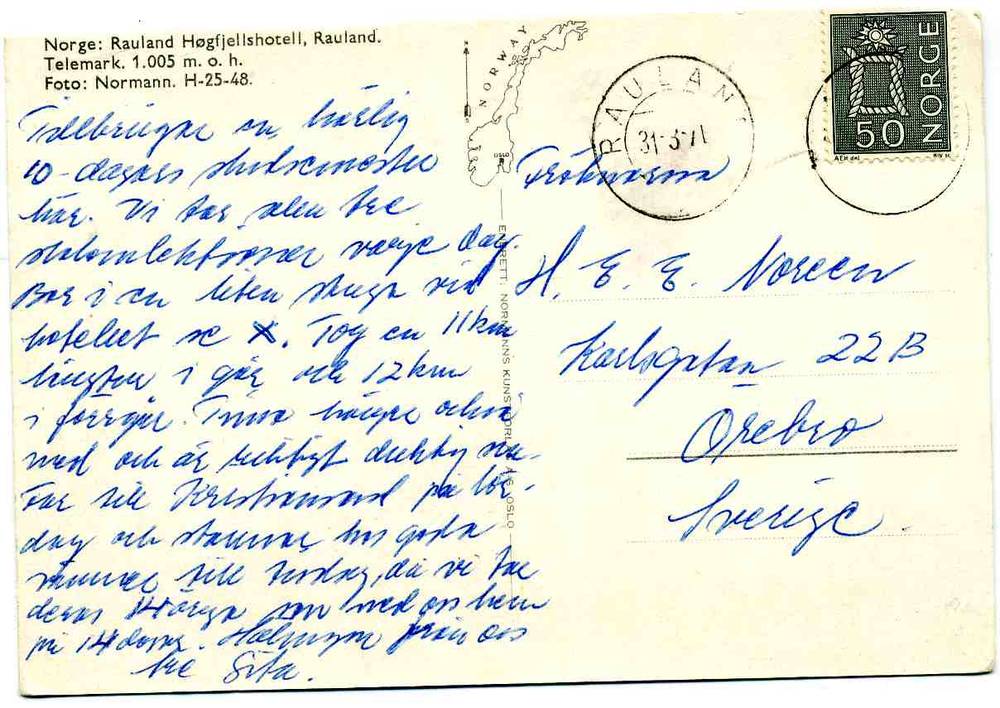 Norge: Rauland Høgfjellshotell, Rauland.
Telemark. 1.005 m. o. h.
Foto: Normann. H-25-48.
Tillbringar en härlig
10-dagars
här. Vi tar alla tre
varje dag.
Bor i en liten stuga vid
hotellet se X. Tog en 11 km
i går och 12 km
i förrgår.
med och är riktigt duktig nu.
Far till Kristiansand på lör-
dag och stannar hos goda
vänner till tisdag, då vi tar
deras 14 åriga son med oss hem
på 14 dagar. Hälsningar från oss
tre Gita.
NORWAY
OSLO
ENERETT: NORMANNS KUNSTFORLAG A/S, OSLO
RAULAND
31-3-71
NORGE
50
Fröknarna
H. E. E. Noreen
Karlsgatan 22B
Örebro
Sverige